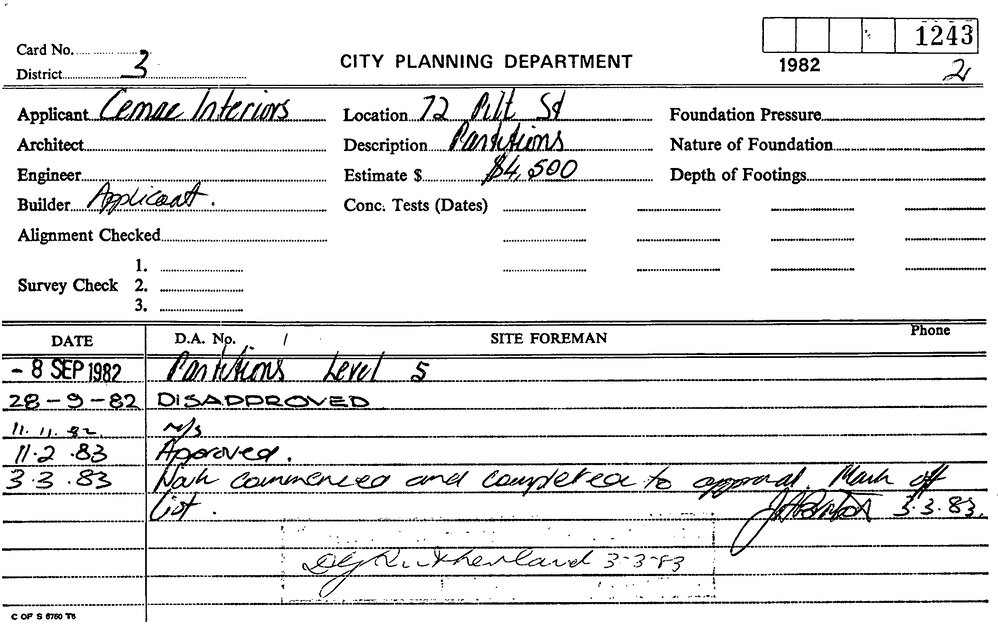 Card No.
1243
District 3
CITY PLANNING DEPARTMENT
1982
2
Applicant Cemac Interiors
Location 72 Pitt St
Foundation Pressure
Architect
Description Partitions
Nature of Foundation
Engineer
Estimate $ $4,500
Depth of Footings
Builder Applicant.
Conc. Tests (Dates)
Alignment Checked
Survey Check 1.
2.
3.
DATE D.A. No. / SITE FOREMAN Phone
- 8 SEP 1982 Partitions Level 5
28-9-82 DISAPPROVED
11.11.82 N/S
11.2.83 Approved.
3.3.83 Work commenced and completed to approval. Mark off
list. 3.3.83.
DG Rutherland 3-3-83
C OF S 6760 T6